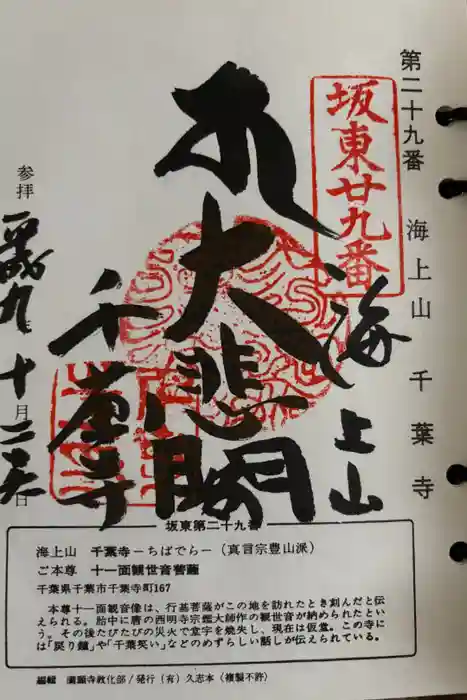 第二十九番 海上山 千葉寺
坂東廿九番
海上山
大悲閣
千葉寺
参拝 平成九年十月二六日
坂東第二十九番
海上山 千葉寺 ―ちばでら― (真言宗豊山派)
ご本尊 十一面観世音菩薩
千葉県千葉市千葉寺町167
本尊十一面観音像は、行基菩薩がこの地を訪れたとき刻んだと伝
えられる。胎中に唐の西明寺宗鑑大師作の観世音が納められたとい
う。その後たびたびの災火で堂宇を焼失し、現在は仮堂。この寺に
は「戻り鐘」や「千葉笑い」などのめずらしい話しが伝えられている。
編輯 満願寺教化部/発行(有)久志本(複製不許)